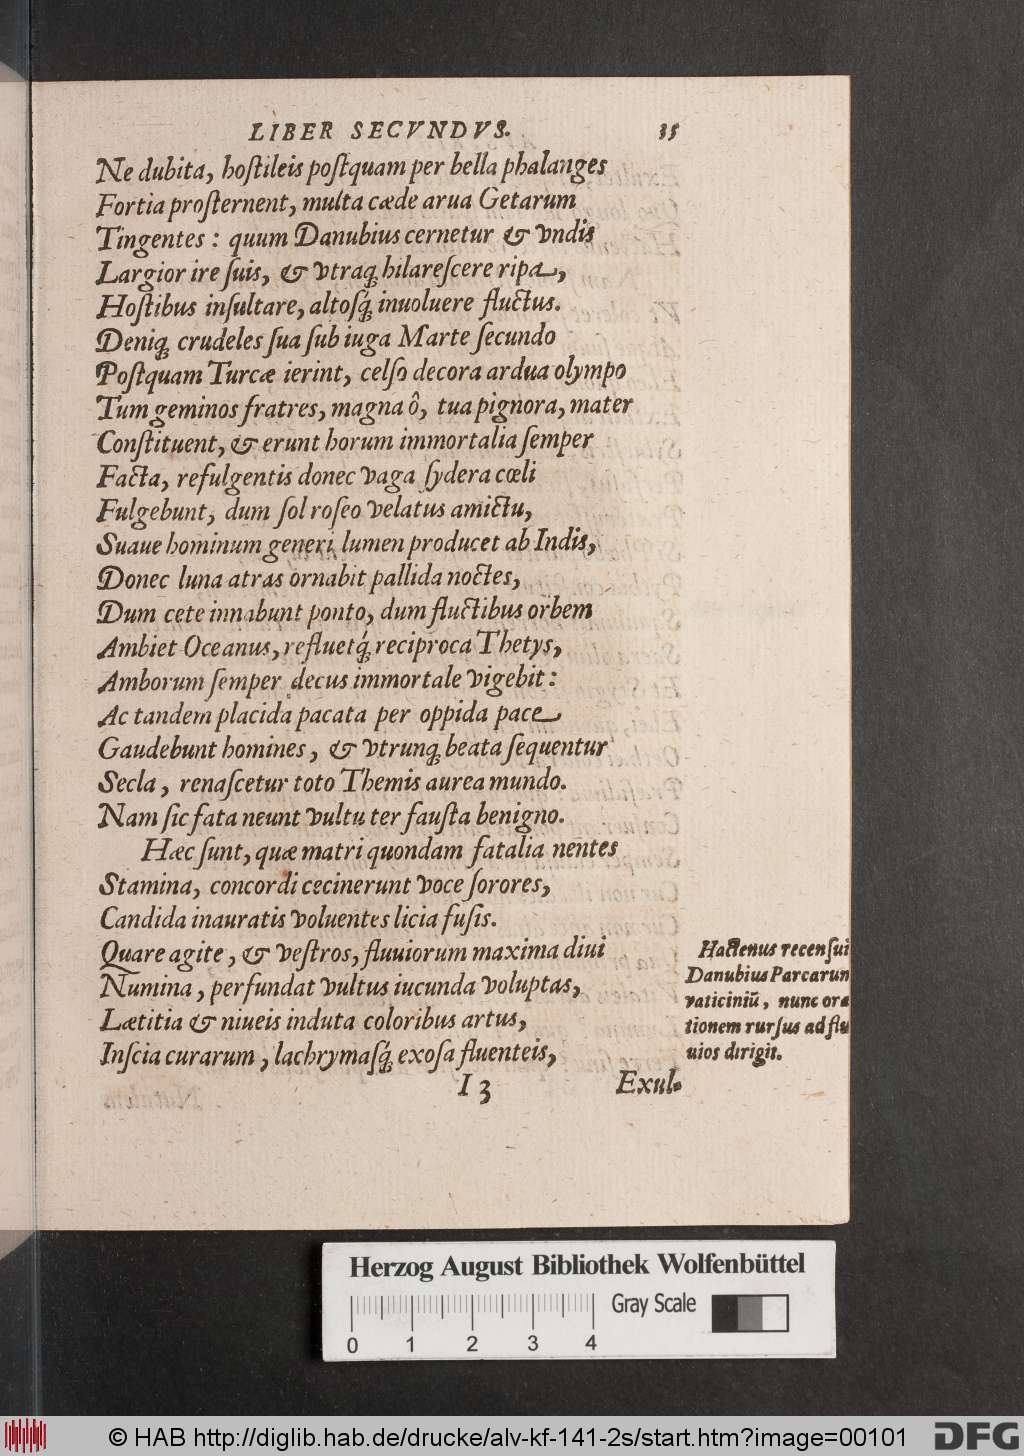 LIBER SECVNDVS. 35
Ne dubita, hoſtileis poſtquam per bella phalanges
Fortia proſternent, multa cæde arua Getarum
Tingentes : quum Danubius cernetur & vndis
Largior ire ſuis, & vtraq́ hilareſcere ripa,
Hoſtibus inſultare, altoſq́ inuoluere fluctus.
Deniq́ crudeles ſua ſub iuga Marte ſecundo
Poſtquam Turcæ ierint, celſo decora ardua olympo
Tum geminos fratres, magna ô, tua pignora, mater
Conſtituent, & erunt horum immortalia ſemper
Facta, refulgentis donec vaga ſydera cœli
Fulgebunt, dum ſol roſeo velatus amictu,
Suaue hominum generi lumen producet ab Indis,
Donec luna atras ornabit pallida noctes,
Dum cete innabunt ponto, dum fluctibus orbem
Ambiet Oceanus, refluetq́ reciproca Thetys,
Amborum ſemper decus immortale vigebit :
Ac tandem placida pacata per oppida pace
Gaudebunt homines, & vtrunq́ beata ſequentur
Secla, renaſcetur toto Themis aurea mundo.
Nam ſic fata neunt vultu ter fauſta benigno.
Hæc ſunt, quæ matri quondam fatalia nentes
Stamina, concordi cecinerunt voce ſorores,
Candida inauratis voluentes licia fuſis.
Quare agite, & veſtros, fluuiorum maxima diui
Numina, perfundat vultus iucunda voluptas,
Lætitia & niueis induta coloribus artus,
Inſcia curarum, lachrymaſq́ exoſa fluenteis,
Hactenus recenſui
Danubius Parcarun
vaticiniū, nunc ora
tionem rurſus ad flu
uios dirigit.
I 3 Exul-
Herzog August Bibliothek Wolfenbüttel
Gray Scale
0 1 2 3 4
© HAB http://diglib.hab.de/drucke/alv-kf-141-2s/start.htm?image=00101
DFG